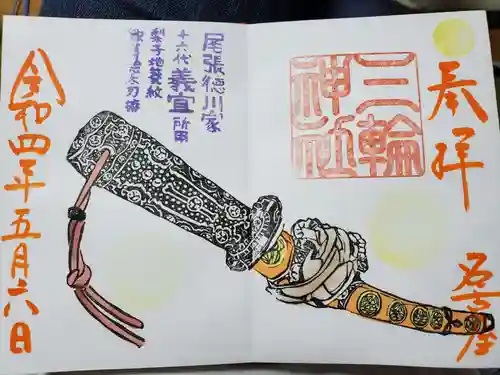 奉拝
三輪
神社
名古屋
尾張徳川家
十六代 義宜 所用
梨子地葵紋
太刀拵
令和四年五月六日